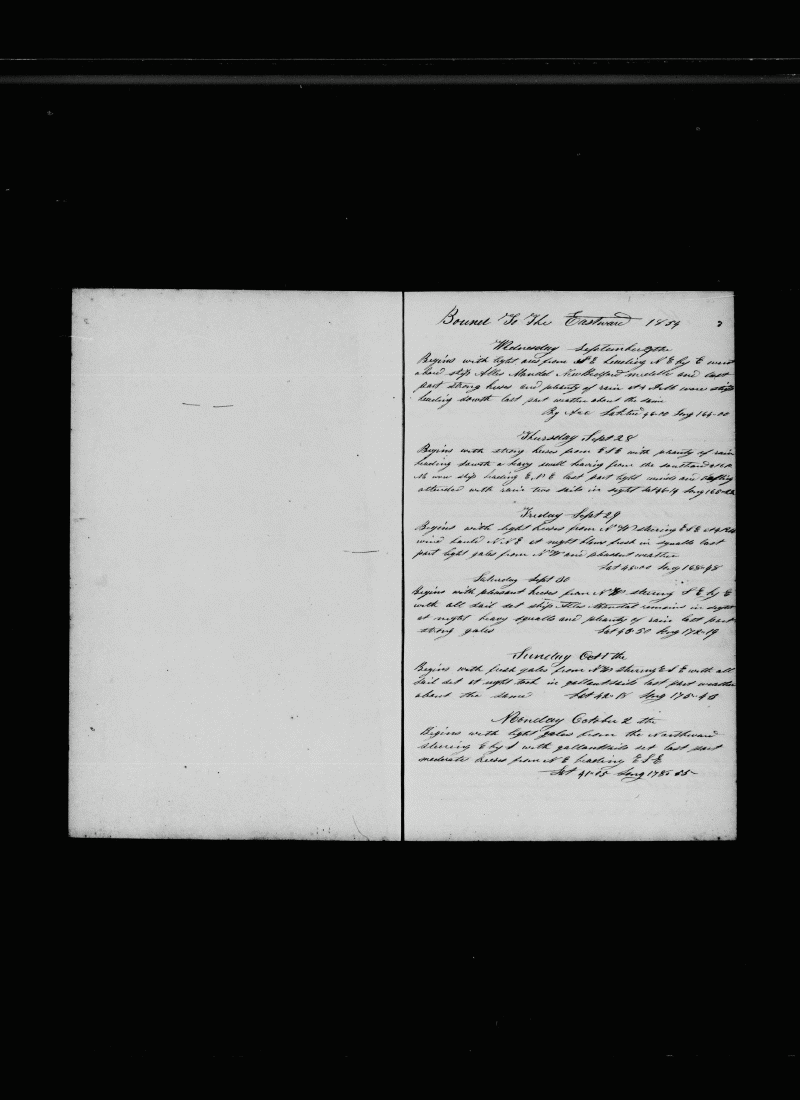 Bound To The Eastward 1854
Wednesday September 27the
Begins with light airs from N E heading N E by E went
abord ship Allec Mandel New Bedford middle and last
part strong breses and plenty of rain at 4 A M wore ship
heading South last part weather about the same
By Acc Latitud 46-00 Long 164-00
Thursday Sept 28
Begins with strong breses from E S E with plenty of rain
heading South a heavy swell heaving from the Southard at 12
M wore ship heading E N E last part light winds and
attended with rain two sails in sight Lat 46-14 Long
Friday Sept 29
Begins with light breses from N W stering E S E at
wind hauld N N E at night blows fresh in squalls last
part light gales from N W and pleasent weather
Lat 45-00 Long 168-48
Saturday Sept 30
Begins with pleasent breses from N W stering S E by E
with all sail set ship Allec Mandal remains in sight
at night heavy squalls and plenty of rain last part
strong gales Lat 43-50 Long 172-19
Sunday Oct 1 the
Begins with fresh gales from N W stering E S E with all
sail set at night took in gallantsails last part weather
about the same Lat 42-18 Long 175-40
Monday October 2 the
Begins with light gales from the Northward
stering E by S with gallantsails set last part
moderate breses from N E heading E S E
Lat 41-05 Long 178-55